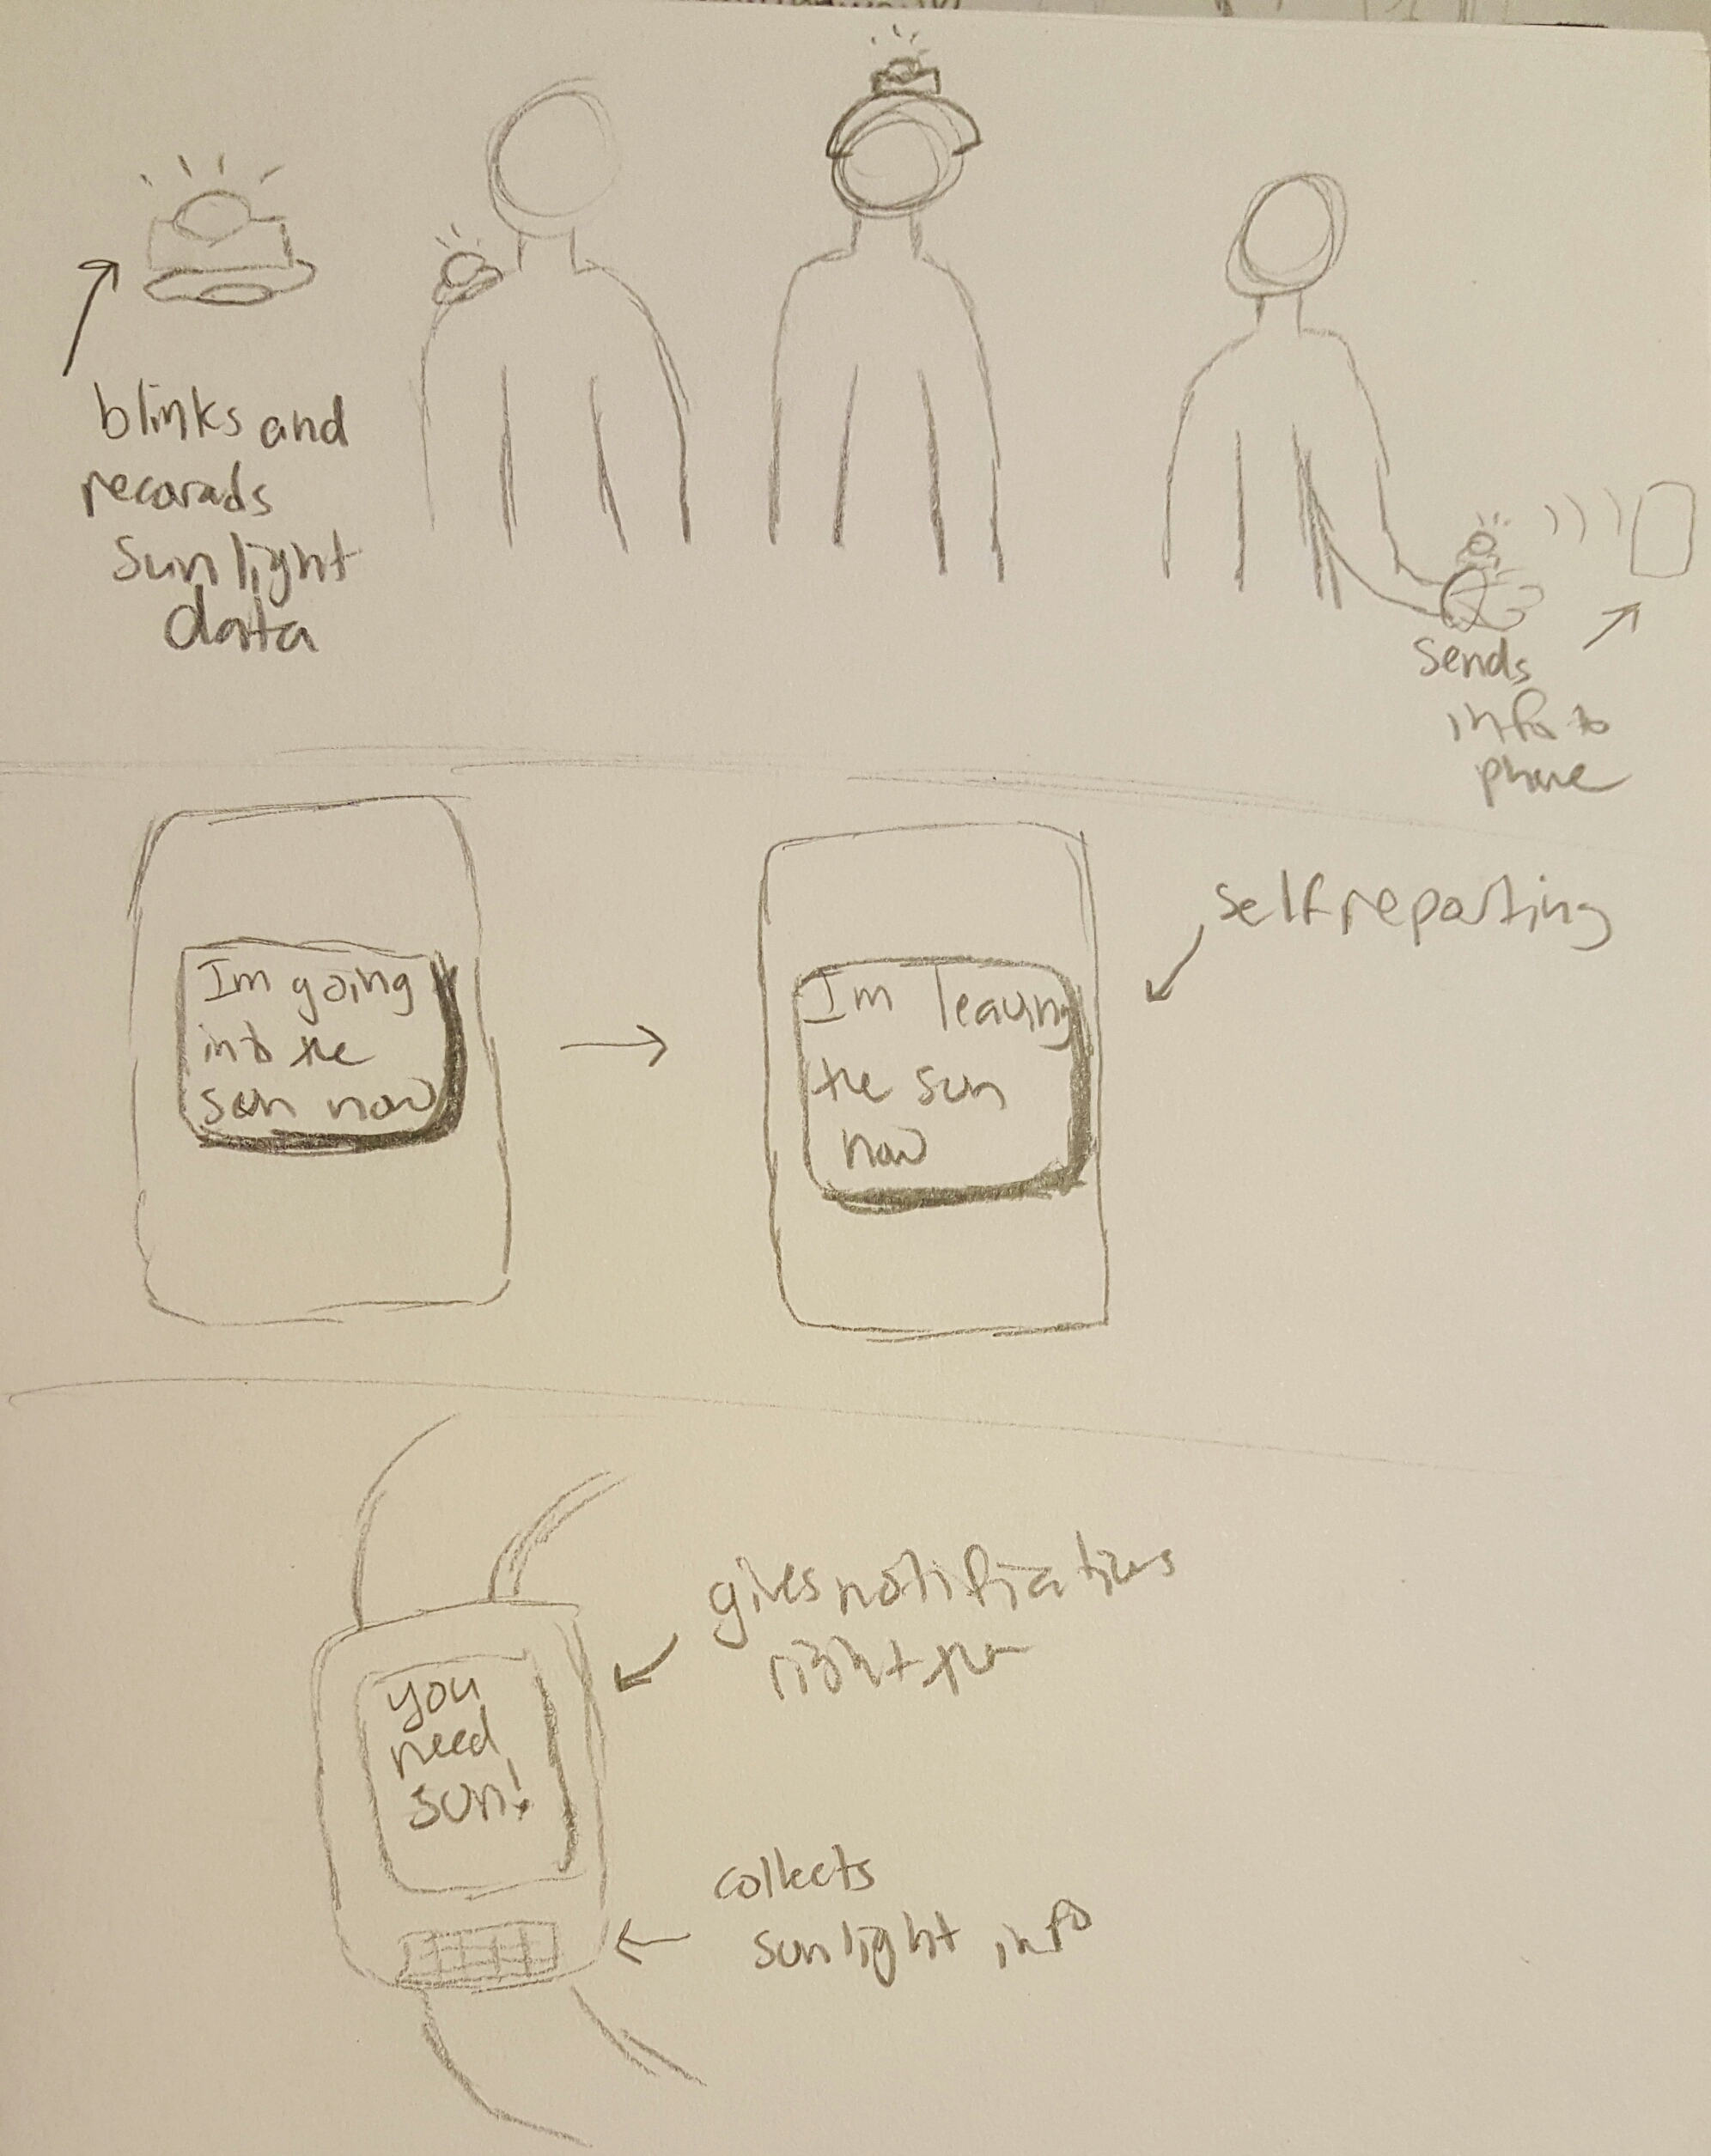 blinks and
recorads
sunlight
data
sends
info to
phone
Im going
into the
sun now
Im leaving
the sun
now
self reporting
you
need
sun!
gives notifications
right there
collects
sunlight info